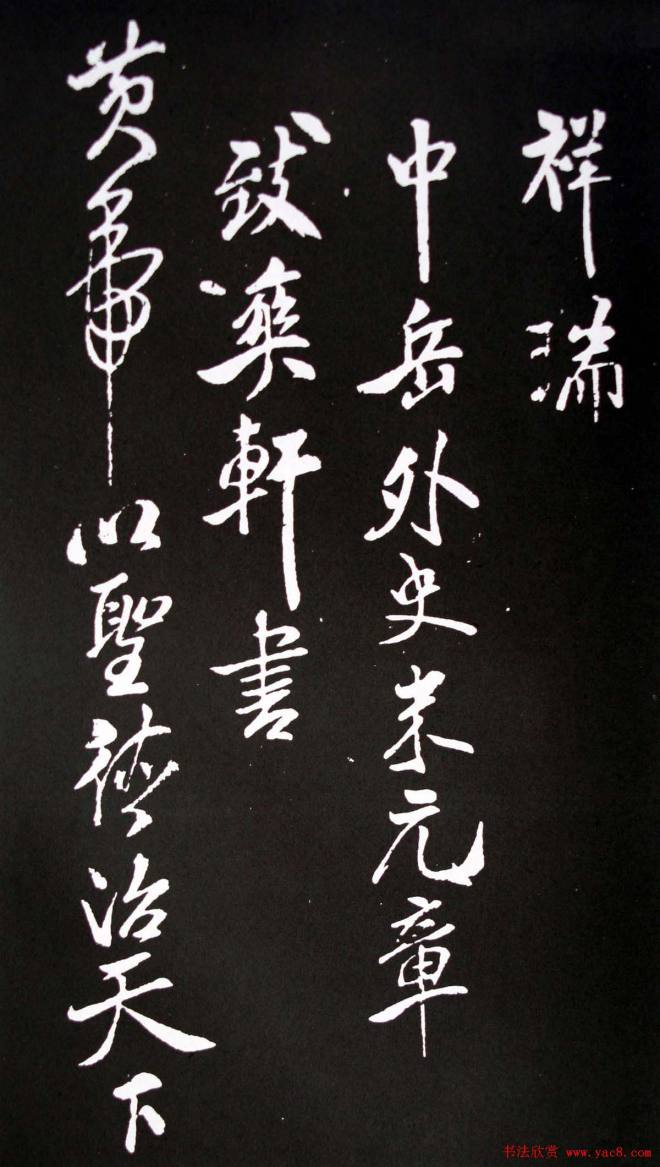 祥瑞
中岳外史米元章
致爽軒書
黄帝以聖德治天下
书法欣赏 www.yac8.com